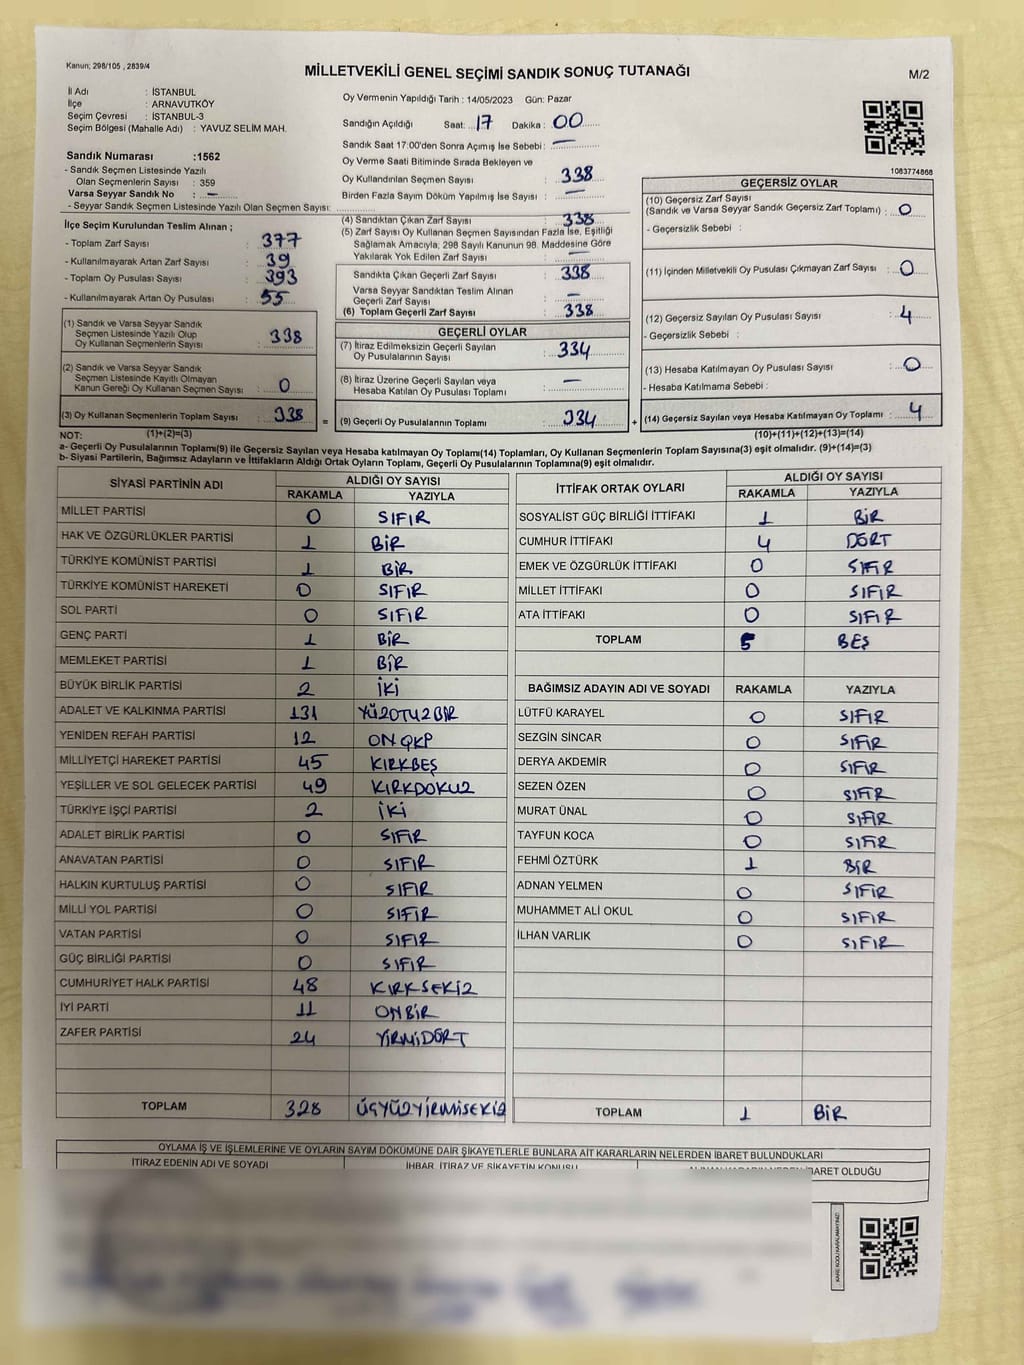 Kanun; 298/105 , 2839/4
MİLLETVEKİLİ GENEL SEÇİMİ SANDIK SONUÇ TUTANAĞI
M/2
İl Adı : İSTANBUL
İlçe : ARNAVUTKÖY
Seçim Çevresi : İSTANBUL-3
Seçim Bölgesi (Mahalle Adı) : YAVUZ SELİM MAH.
Sandık Numarası :1562
- Sandık Seçmen Listesinde Yazılı
Olan Seçmenlerin Sayısı : 359
Varsa Seyyar Sandık No : —
- Seyyar Sandık Seçmen Listesinde Yazılı Olan Seçmen Sayısı:
Oy Vermenin Yapıldığı Tarih : 14/05/2023 Gün: Pazar
Sandığın Açıldığı Saat: 17 Dakika : 00
Sandık Saat 17:00'den Sonra Açımış İse Sebebi : —
Oy Verme Saati Bitiminde Sırada Bekleyen ve
Oy Kullandırılan Seçmen Sayısı : 338
Birden Fazla Sayım Döküm Yapılmış İse Sayısı : —
1083774868
İlçe Seçim Kurulundan Teslim Alınan ;
- Toplam Zarf Sayısı : 377
- Kullanılmayarak Artan Zarf Sayısı : 39
- Toplam Oy Pusulası Sayısı : 393
- Kullanılmayarak Artan Oy Pusulası : 55
(1) Sandık ve Varsa Seyyar Sandık
Seçmen Listesinde Yazılı Olup
Oy Kullanan Seçmenlerin Sayısı : 338
(2) Sandık ve Varsa Seyyar Sandık
Seçmen Listesinde Kayıtlı Olmayan
Kanun Gereği Oy Kullanan Seçmen Sayısı : 0
(3) Oy Kullanan Seçmenlerin Toplam Sayısı : 338
(4) Sandıktan Çıkan Zarf Sayısı : 338
(5) Zarf Sayısı Oy Kullanan Seçmen Sayısından Fazla İse, Eşitliği
Sağlamak Amacıyla, 298 Sayılı Kanunun 98. Maddesine Göre
Yakılarak Yok Edilen Zarf Sayısı : —
Sandıkta Çıkan Geçerli Zarf Sayısı : 338
Varsa Seyyar Sandıktan Teslim Alınan
Geçerli Zarf Sayısı : —
(6) Toplam Geçerli Zarf Sayısı : 338
GEÇERLİ OYLAR
(7) İtiraz Edilmeksizin Geçerli Sayılan
Oy Pusulalarının Sayısı : 334
(8) İtiraz Üzerine Geçerli Sayılan veya
Hesaba Katılan Oy Pusulası Toplamı : —
= (9) Geçerli Oy Pusulalarının Toplamı : 334
GEÇERSİZ OYLAR
(10) Geçersiz Zarf Sayısı
(Sandık ve Varsa Seyyar Sandık Geçersiz Zarf Toplamı) : 0
- Geçersizlik Sebebi :
(11) İçinden Milletvekili Oy Pusulası Çıkmayan Zarf Sayısı : 0
(12) Geçersiz Sayılan Oy Pusulası Sayısı : 4
- Geçersizlik Sebebi :
(13) Hesaba Katılmayan Oy Pusulası Sayısı : 0
- Hesaba Katılmama Sebebi :
+ (14) Geçersiz Sayılan veya Hesaba Katılmayan Oy Toplamı : 4
NOT: (1)+(2)=(3) (10)+(11)+(12)+(13)=(14)
a- Geçerli Oy Pusulalarının Toplamı(9) ile Geçersiz Sayılan veya Hesaba katılmayan Oy Toplamı(14) Toplamları, Oy Kullanan Seçmenlerin Toplam Sayısına(3) eşit olmalıdır. (9)+(14)=(3)
b- Siyasi Partilerin, Bağımsız Adayların ve İttifakların Aldığı Ortak Oyların Toplamı, Geçerli Oy Pusulalarının Toplamına(9) eşit olmalıdır.
SİYASİ PARTİNİN ADI ALDIĞI OY SAYISI
RAKAMLA YAZIYLA
MİLLET PARTİSİ 0 SIFIR
HAK VE ÖZGÜRLÜKLER PARTİSİ 1 BİR
TÜRKİYE KOMÜNİST PARTİSİ 1 BİR
TÜRKİYE KOMÜNİST HAREKETİ 0 SIFIR
SOL PARTİ 0 SIFIR
GENÇ PARTİ 1 BİR
MEMLEKET PARTİSİ 1 BİR
BÜYÜK BİRLİK PARTİSİ 2 İKİ
ADALET VE KALKINMA PARTİSİ 131 YÜZOTUZBİR
YENİDEN REFAH PARTİSİ 12 ON
MİLLİYETÇİ HAREKET PARTİSİ 45 KIRKBEŞ
YEŞİLLER VE SOL GELECEK PARTİSİ 49 KIRKDOKUZ
TÜRKİYE İŞÇİ PARTİSİ 2 İKİ
ADALET BİRLİK PARTİSİ 0 SIFIR
ANAVATAN PARTİSİ 0 SIFIR
HALKIN KURTULUŞ PARTİSİ 0 SIFIR
MİLLİ YOL PARTİSİ 0 SIFIR
VATAN PARTİSİ 0 SIFIR
GÜÇ BİRLİĞİ PARTİSİ 0 SIFIR
CUMHURİYET HALK PARTİSİ 48 KIRKSEKİZ
İYİ PARTİ 11 ONBİR
ZAFER PARTİSİ 24 YİRMİDÖRT
TOPLAM 328 ÜÇYÜZYİRMİSEKİZ
İTTİFAK ORTAK OYLARI ALDIĞI OY SAYISI
RAKAMLA YAZIYLA
SOSYALİST GÜÇ BİRLİĞİ İTTİFAKI 1 BİR
CUMHUR İTTİFAKI 4 DÖRT
EMEK VE ÖZGÜRLÜK İTTİFAKI 0 SIFIR
MİLLET İTTİFAKI 0 SIFIR
ATA İTTİFAKI 0 SIFIR
TOPLAM 5 BEŞ
BAĞIMSIZ ADAYIN ADI VE SOYADI RAKAMLA YAZIYLA
LÜTFÜ KARAYEL 0 SIFIR
SEZGİN SİNCAR 0 SIFIR
DERYA AKDEMİR 0 SIFIR
SEZEN ÖZEN 0 SIFIR
MURAT ÜNAL 0 SIFIR
TAYFUN KOCA 0 SIFIR
FEHMİ ÖZTÜRK 1 BİR
ADNAN YELMEN 0 SIFIR
MUHAMMET ALİ OKUL 0 SIFIR
İLHAN VARLIK 0 SIFIR
TOPLAM 1 BİR
OYLAMA İŞ VE İŞLEMLERİNE VE OYLARIN SAYIM DÖKÜMÜNE DAİR ŞİKAYETLERLE BUNLARA AİT KARARLARIN NELERDEN İBARET BULUNDUKLARI
İTİRAZ EDENİN ADI VE SOYADI İHBAR, İTİRAZ VE ŞİKAYETİN KONUSU İBARET OLDUĞU
KARE KODU KARALAMAYINIZ!